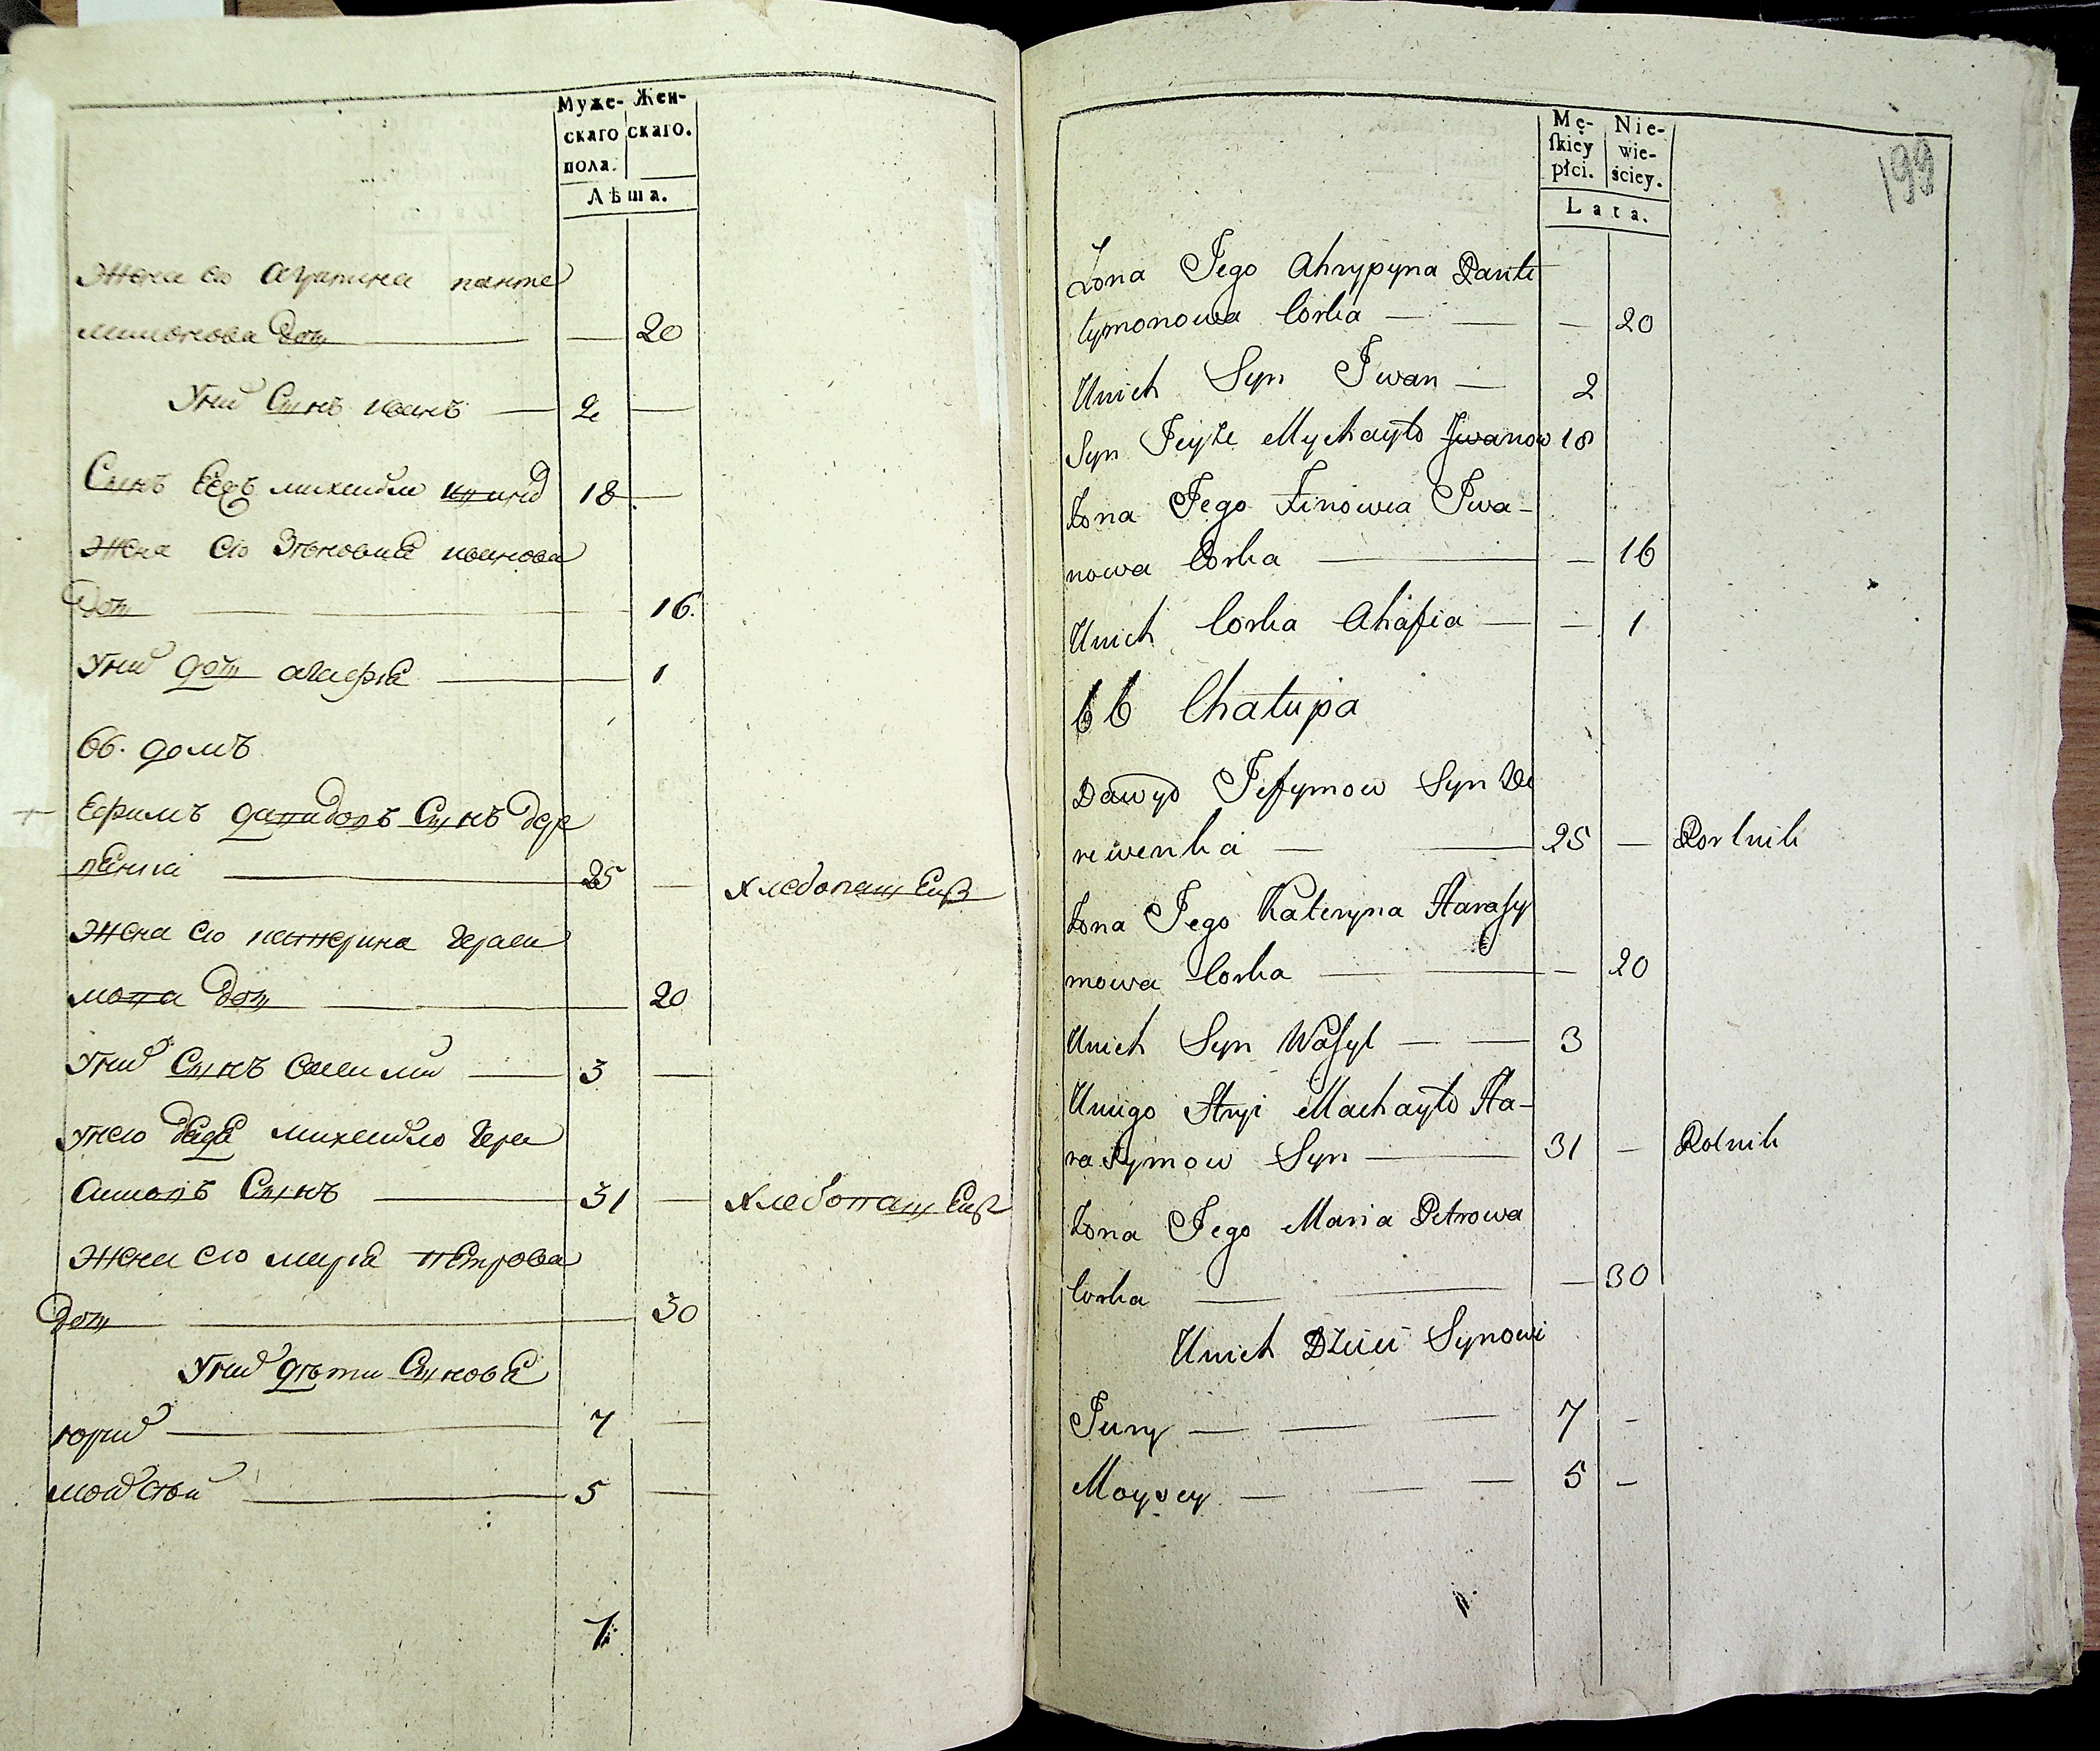 Муже-
скаго
пола.
Жен-
скаго.
Лѣта.
Жена его Агрипина панте
лимонова доч — — 20
У них Сынъ иванъ — 2 —
Сынъ Михайло 18 —
Жена его Зѣновия иванова
доч — 16.
У них доч агафия — 1
66. домъ
Ефимъ давидовъ Сынъ дере
— 25 — хлебопашец
Жена его катерина гераси
мова доч — 20
У них Сынъ василий — 3 —
У него дядя михайло гера
симовъ Сынъ — 31 — хлебопашец
Жена его мария петрова
доч — 30
У них дѣти Сыновья
юрий — 7 —
мойсей — 5 —
7.
199
Mę-
skiey
płci.
Nie-
wie-
ściey.
Lata.
Żona Jego Ahrypyna Pante
lymonowa Corka — — — 20
Unich Syn Iwan — 2
Syn Mychayło Iwanow 18
Żona Jego Zinowia Iwa-
nowa Corka — — 16
Unich Corka Ahafia — — 1
66 Chałupa
Dawyd Jefymow Syn De
rewenka — — 25 — Rolnik
Żona Jego Kateryna Harasy
mowa Corka — — — 20
Unich Syn Wasyl — — 3
Uniego Stryi Machayło Ha-
rasymow Syn — 31 — Rolnik
Żona Jego Maria Petrowa
Corka — — — 30
Unich Dzieci Synowi
Jury — — — 7 -
Moysey — — — 5 -